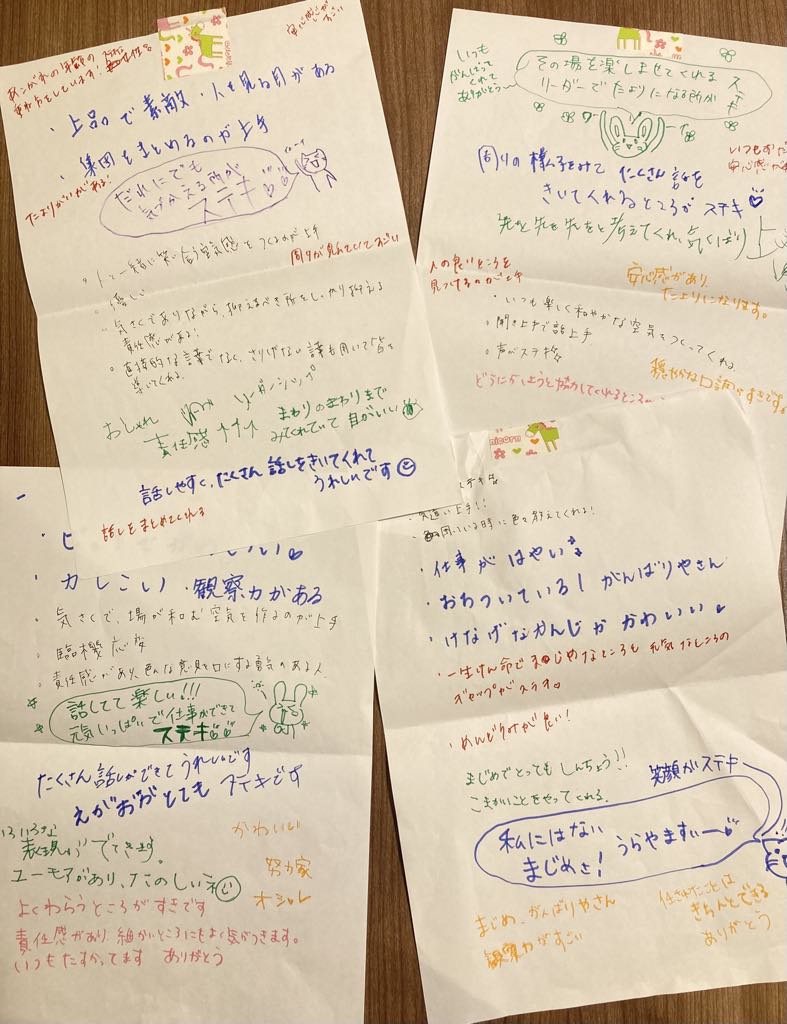 あこがれの年齢の
安心感が
すごい
・上品で素敵・人を見る目がある
・集団をまとめるのが上手
だれにでも
気づかえる所が
ステキ
たよりがいがある!
・人と一緒に笑い合う空気感をつくるのが上手
周りが見えていてすごい
・優しい
・気さくでありながら、抑えるべき所をしっかり抑える
責任感がある!
・直接的な言葉でなく、さりげない言葉も用いて皆を
導いてくれる。
おしゃれ
リーダーシップ
責任感
まわりのまわりまで
みてくれていて目がいい
話しやすく、たくさん話しをきいてくれて
うれしいです
話しをまとめてくれる
unicorn
いつも
がんばって
くれて
ありがとう
その場を楽しませてくれる
リーダーでたよりになる所が
ステキ
周りの様子をみてたくさん話を
きいてくれるところがステキ
先を先を先をと考えてくれ、気くばり
人の良いところを
見つけるのが上手
安心感があり
たよりになります。
・いつも楽しく和やかな空気をつくってくれる
・聞き上手で話上手
・声がステキ
穏やかな口調がすきです。
かしこい・観察力がある
・気さくで、場が和む空気を作るのが上手
・臨機応変
・責任感があり、色んな意見を口にする勇気のある人
話してて楽しい!!!
元気いっぱいで仕事ができて
ステキ
たくさん話しができてうれしいです
えがおがとてもステキです
いろいろな
表現ができます。
ユーモアがあり、たのしいネ
かわいい
努力家
オシャレ
よくわらうところがすきです
責任感があり細かいところにもよく気がつきます。
いつもたすかってます ありがとう
nicorn
・気遣い上手!!
・困っている時に色々教えてくれる!
・仕事がはやい
・おちついている! がんばりやさん
・けなげなかんじがかわいい
・一生けん命でまじめなところも元気なところの
ギャップがステキ。
・めんどうみが良い!
まじめでとってもしんちょう!!
こまかいことをやってくれる。
笑顔がステキ
私にはない
まじめさ! うらやますぃー
まじめ、がんばりやさん
観察力がすごい
任されたことは
きちんとできる
ありがとう